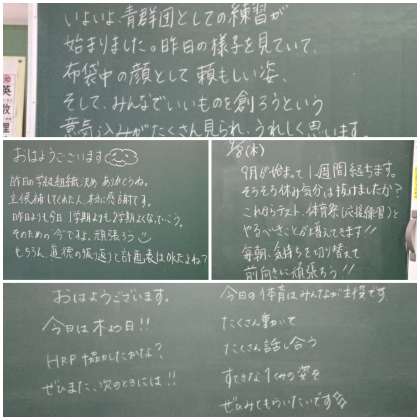 いよいよ、青群団としての練習が
始まりました。昨日の様子を見ていて、
布袋中の顔として頼もしい姿、
そして、みんなでいいものを創ろうという
意気込みがたくさん見られ、うれしく思います。
おはようございます
昨日の学級組織決め ありがとうね。
立候補してくれた人、本当に感謝です。
昨日よりも今日 1学期よりも2学期よくなっていこう。
そのための今ですよ。頑張ろう
もちろん、直後の振り返りと計画表は
(木)
9月が始まって1週間経ちます。
そろそろ休み気分は抜けましたか?
これからテスト、体育祭(応援練習)と
やるべきことが増えてきます!!
毎朝、気持ちを切り替えて
前向きに頑張ろう!!
おはようございます。
今日は木曜日!!
HRP
ぜひまた、次のときには!!
今日の体育はみんなが主役です
たくさん動いて
たくさん話し合う
すてきな1くみの姿を
ぜひみてもらいたいです
英
数
理